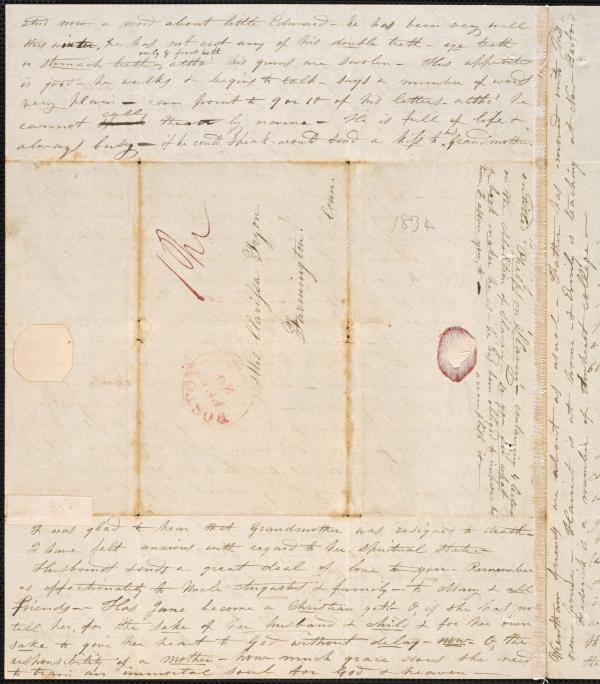 And now a word about little Edward - he has been very well
this winter, he has not cut any of his double teeth - eye teeth
only 8 front teeth
or stomach teeth, altho' his gums are swolen - His appetite
is good - he walks & begins to talk - says a number of words
very plain - can point to 9 or 10 of his letters altho' he
cannot call them by name - He is full of life &
always busy - if he could speak would send a kiss to his Grandmother.
1834
Mrs Clarissa Tryon.
Farmington.
Conn.
BOSTON
I was glad to hear that Grandmother was resigned to death -
I have felt anxious with regard to her spiritual state -
Husband sends a great deal of love to you - Remember
us affectionately to Uncle Augustus & family - to Mary & all
friends - Has Jane become a Christian yet? O, if she has not
tell her, for the sake of her husband & child & for her own
sake to give her heart to God without delay - now - O, the
responsibility of a mother - how much grace does she need
to train an immortal soul for God & heaven -
Wrentham friends are about as usual - Father has moved into his
new house - Harriet is at home - & Emily is teaching at New Bedford
Frederick is a member of Amherst College -